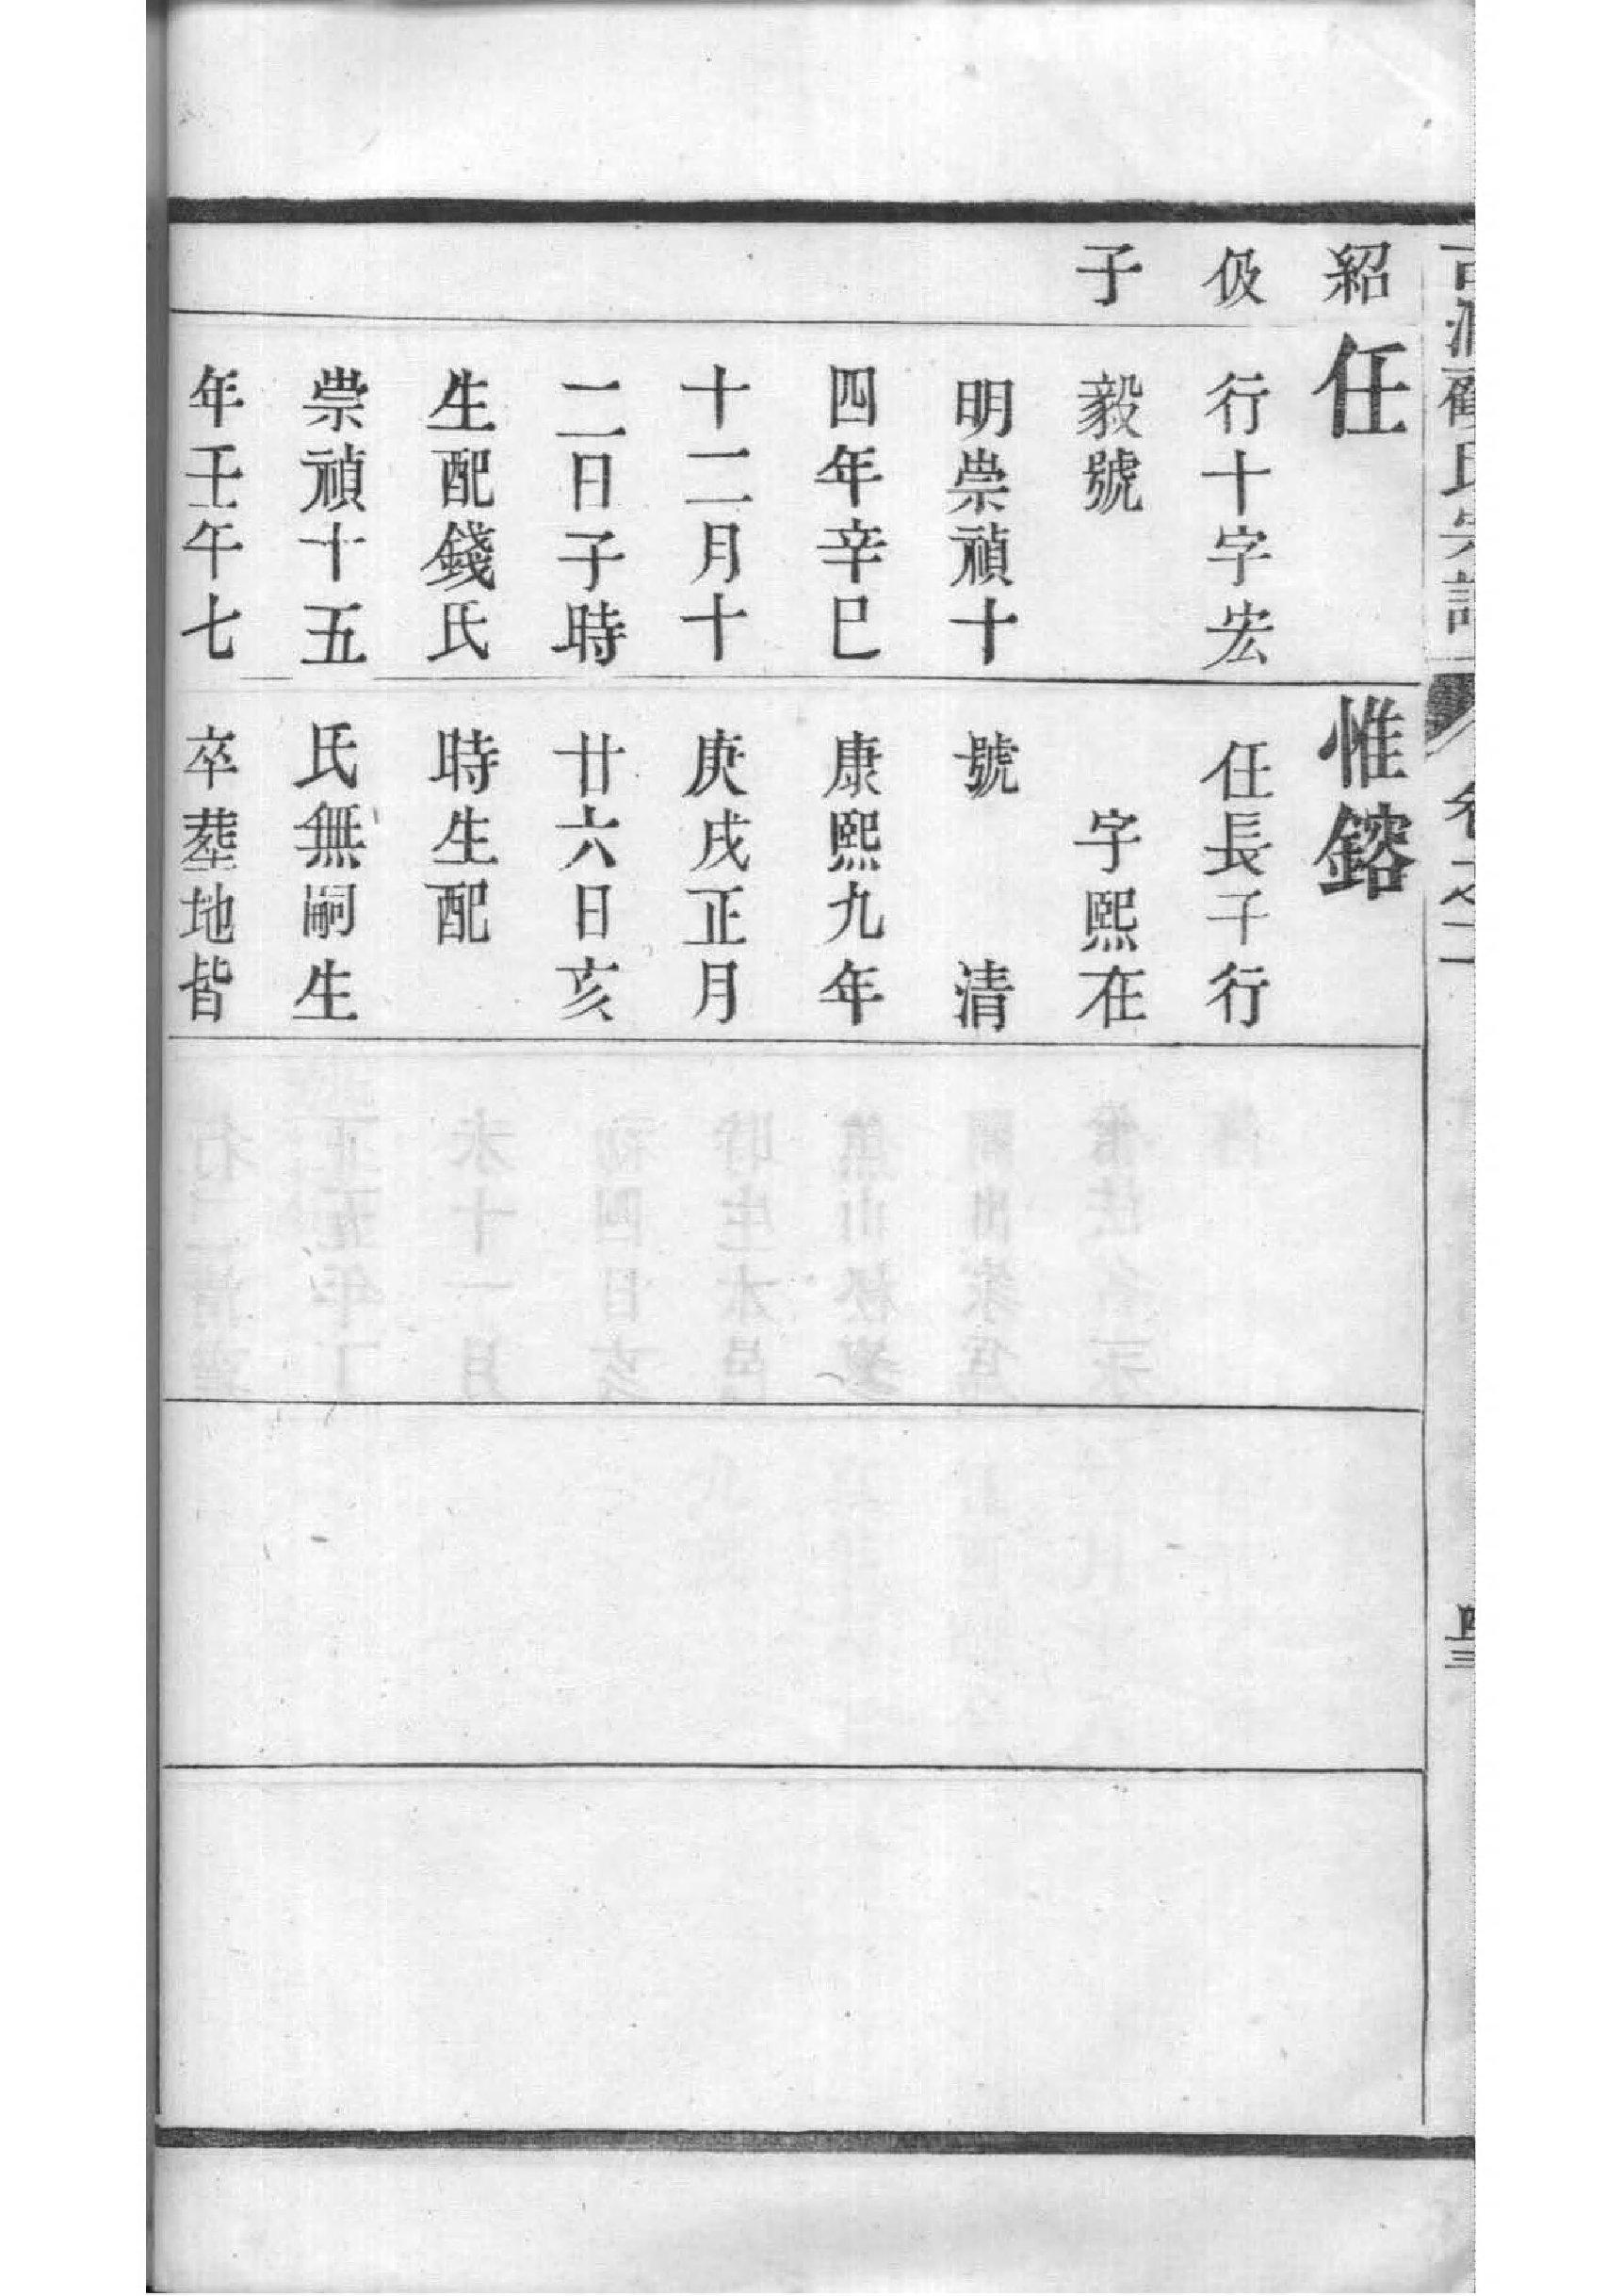 紹
伋
子
任
行十字宏
毅號
明崇禎十
四年辛巳
十二月十
二日子時
生配錢氏
崇禎十五
年壬午七
惟鎔
任長子行
字熙在
號 清
康熙九年
庚戌正月
廿六日亥
時生配
氏無嗣生
卒塟地皆
卷之二